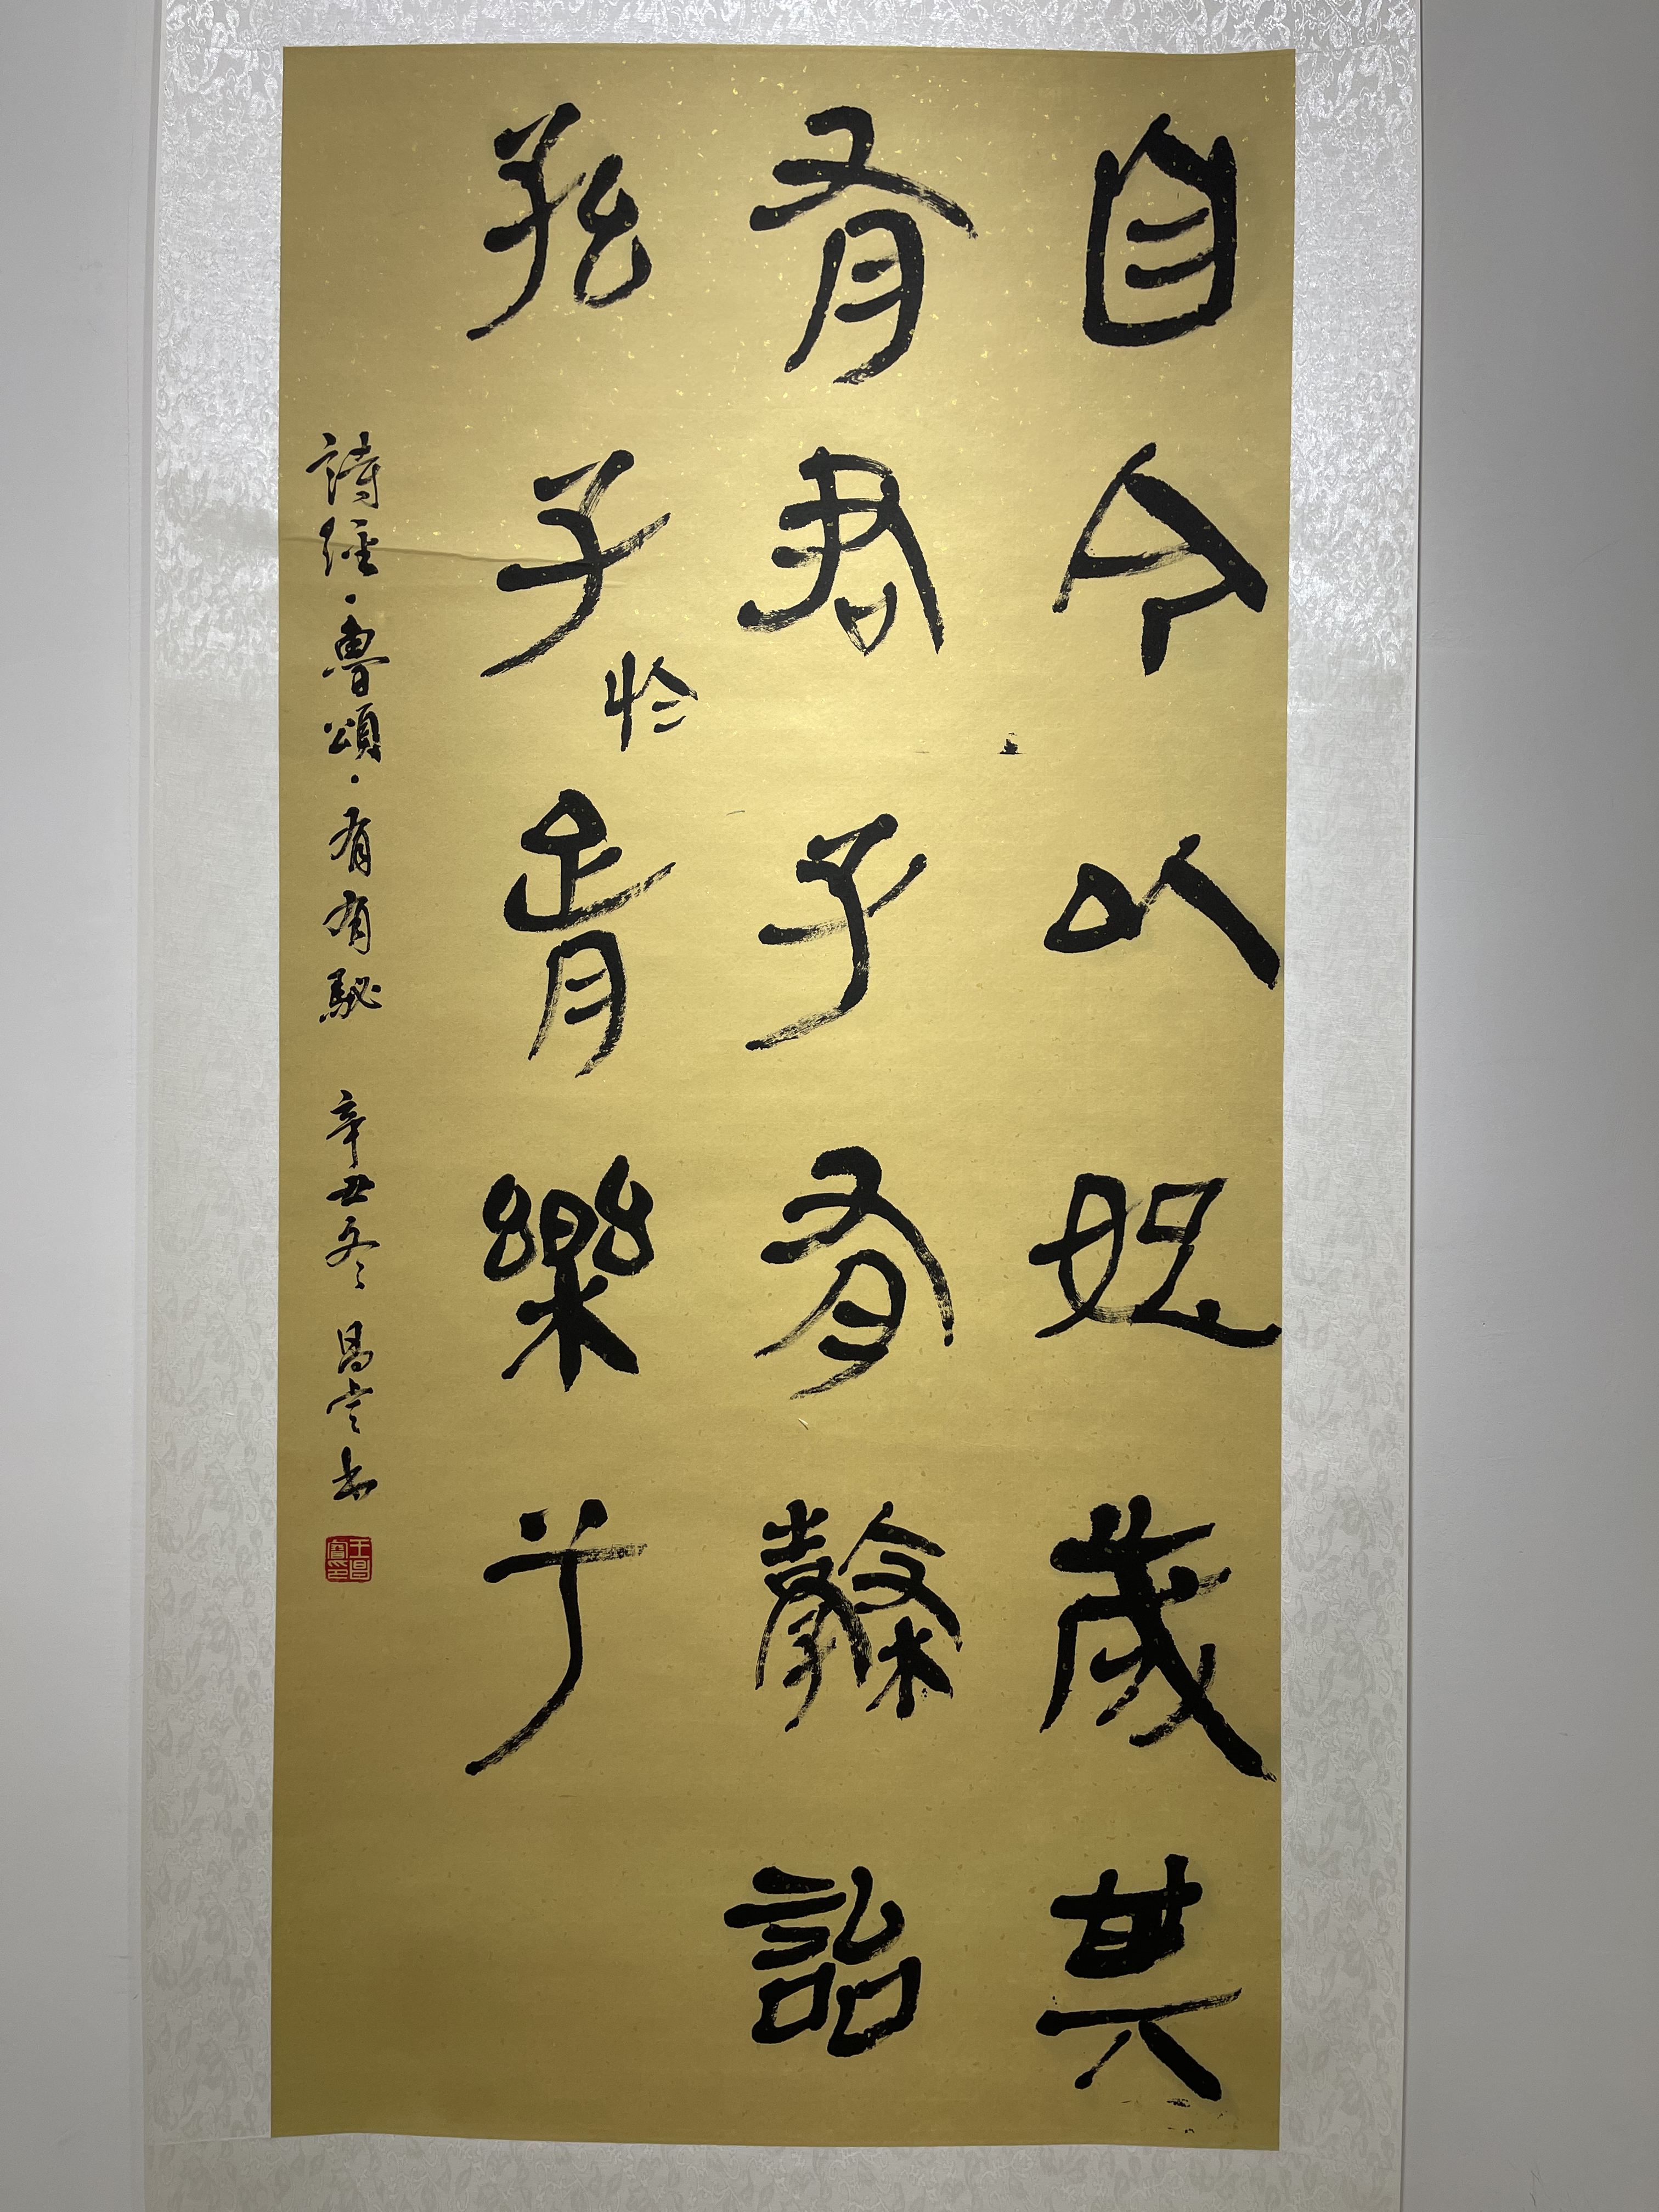 自今以始歲其
有君子有穀詒
孫子於胥樂兮
詩經·魯頌·有有駜 辛丑冬 昌 書